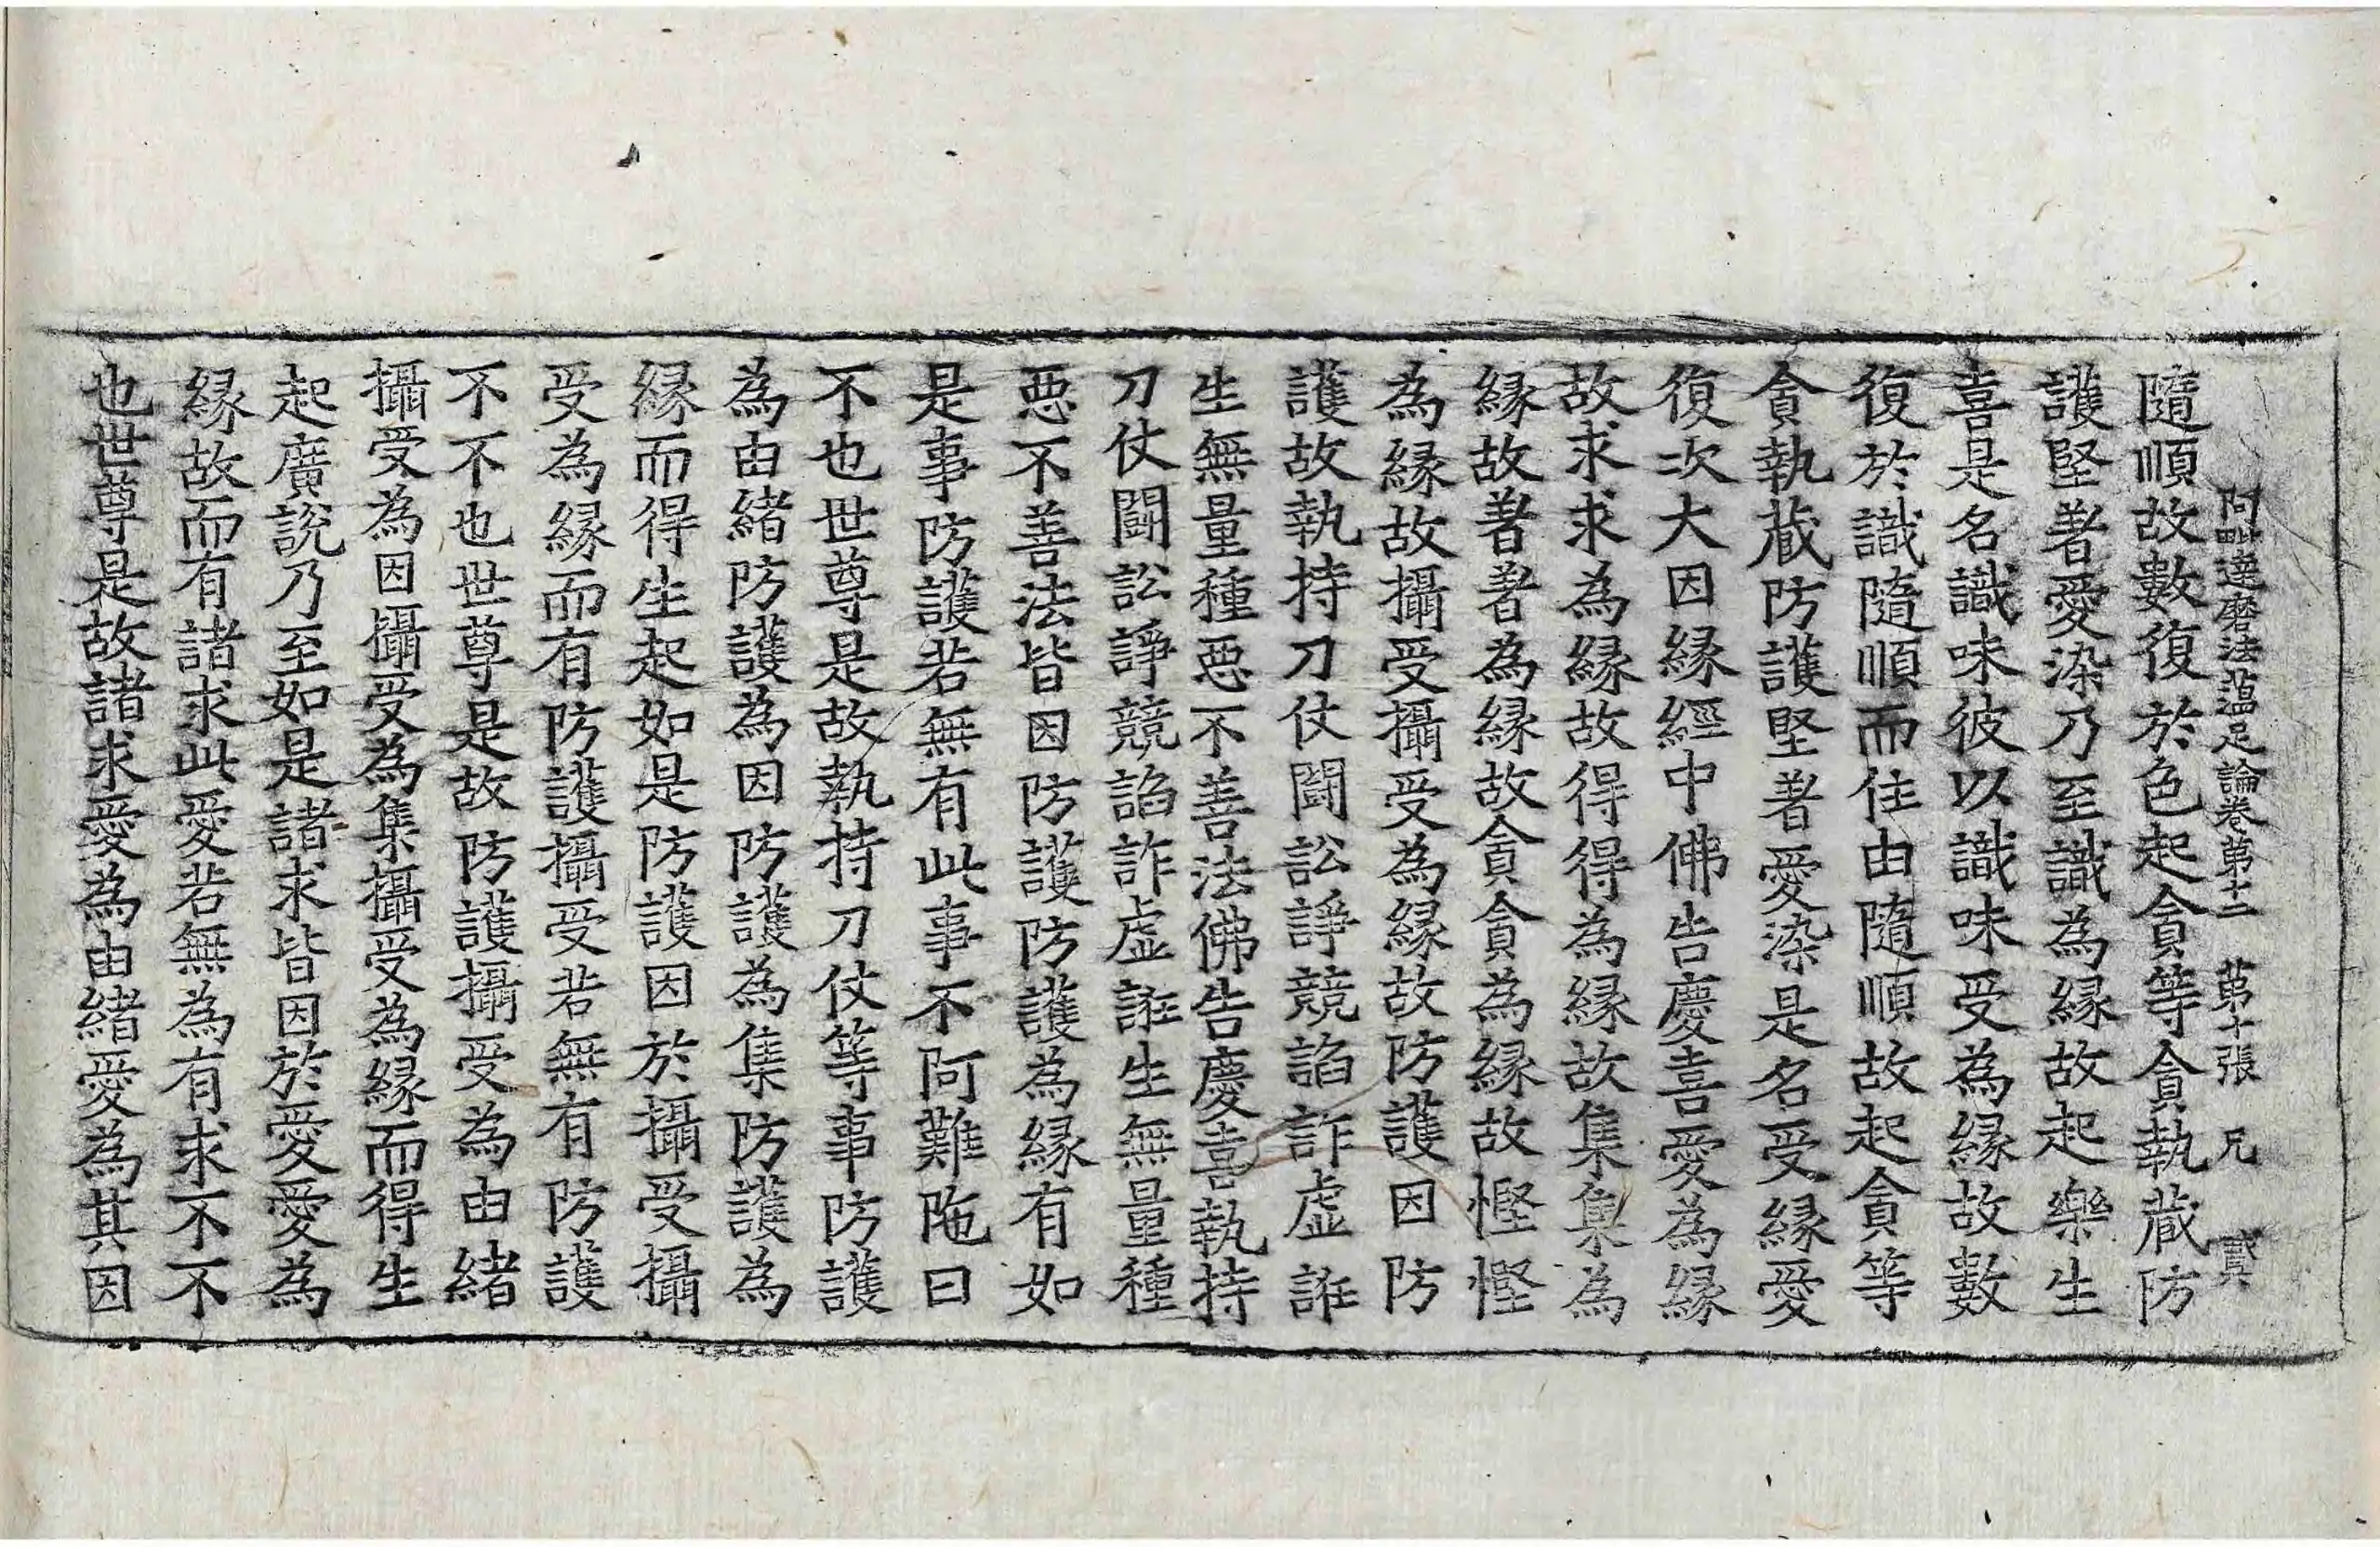 阿毗達磨法蘊足論卷第十二 第十張 兄 貳
隨順故數復於色起貪等貪執藏防
護堅著愛染乃至識為緣故起樂生
喜是名識味彼以識味受為緣故數
復於識隨順而住由隨順故起貪等
貪執藏防護堅著愛染是名受緣愛
復次大因緣經中佛告慶喜愛為緣
故求求為緣故得得為緣故集集為
緣故著著為緣故貪貪為緣故慳慳
為緣故攝受攝受為緣故防護因防
護故執持刀仗鬪訟諍競諂詐虛誑
生無量種惡不善法佛告慶喜執持
刀仗鬪訟諍競諂詐虛誑生無量種
惡不善法皆因防護防護為緣有如
是事防護若無有此事不阿難陁曰
不也世尊是故執持刀仗等事防護
為由緒防護為因防護為集防護為
緣而得生起如是防護因於攝受攝
受為緣而有防護攝受若無有防護
不不也世尊是故防護攝受為由緒
攝受為因攝受為集攝受為緣而得生
起廣說乃至如是諸求皆因於愛愛為
緣故而有諸求此愛若無為有求不不
也世尊是故諸求愛為由緒愛為其因